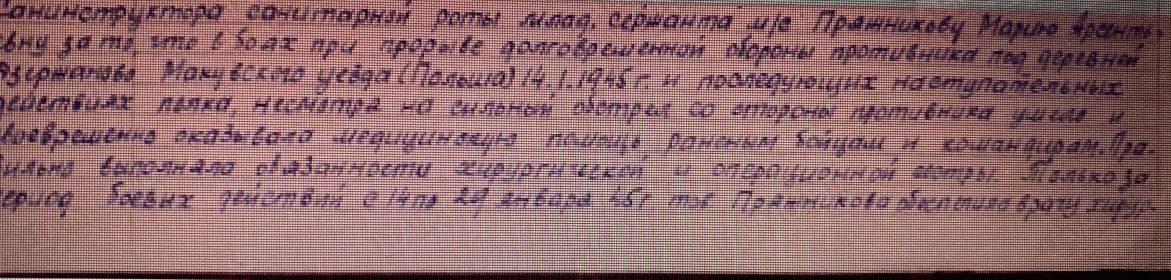 Санинструктора санитарной роты млад. сержанта м/с Пряжникову Марию Арсенть-
евну за то, что в боях при прорыве долговременной обороны противника под деревней
Маковского уезда (Польша) 14.1.1945 г. и последующих наступательных
действиях полка, несмотря на сильный обстрел со стороны противника умело и
своевременно оказывала медицинскую помощь раненым бойцам и командирам. Пра-
вильно выполняла обязанности хирургической и операционной сестры. Только за
период боевых действий с 14 по 29 января 45 г. тов. Пряжникова врачу хирур-